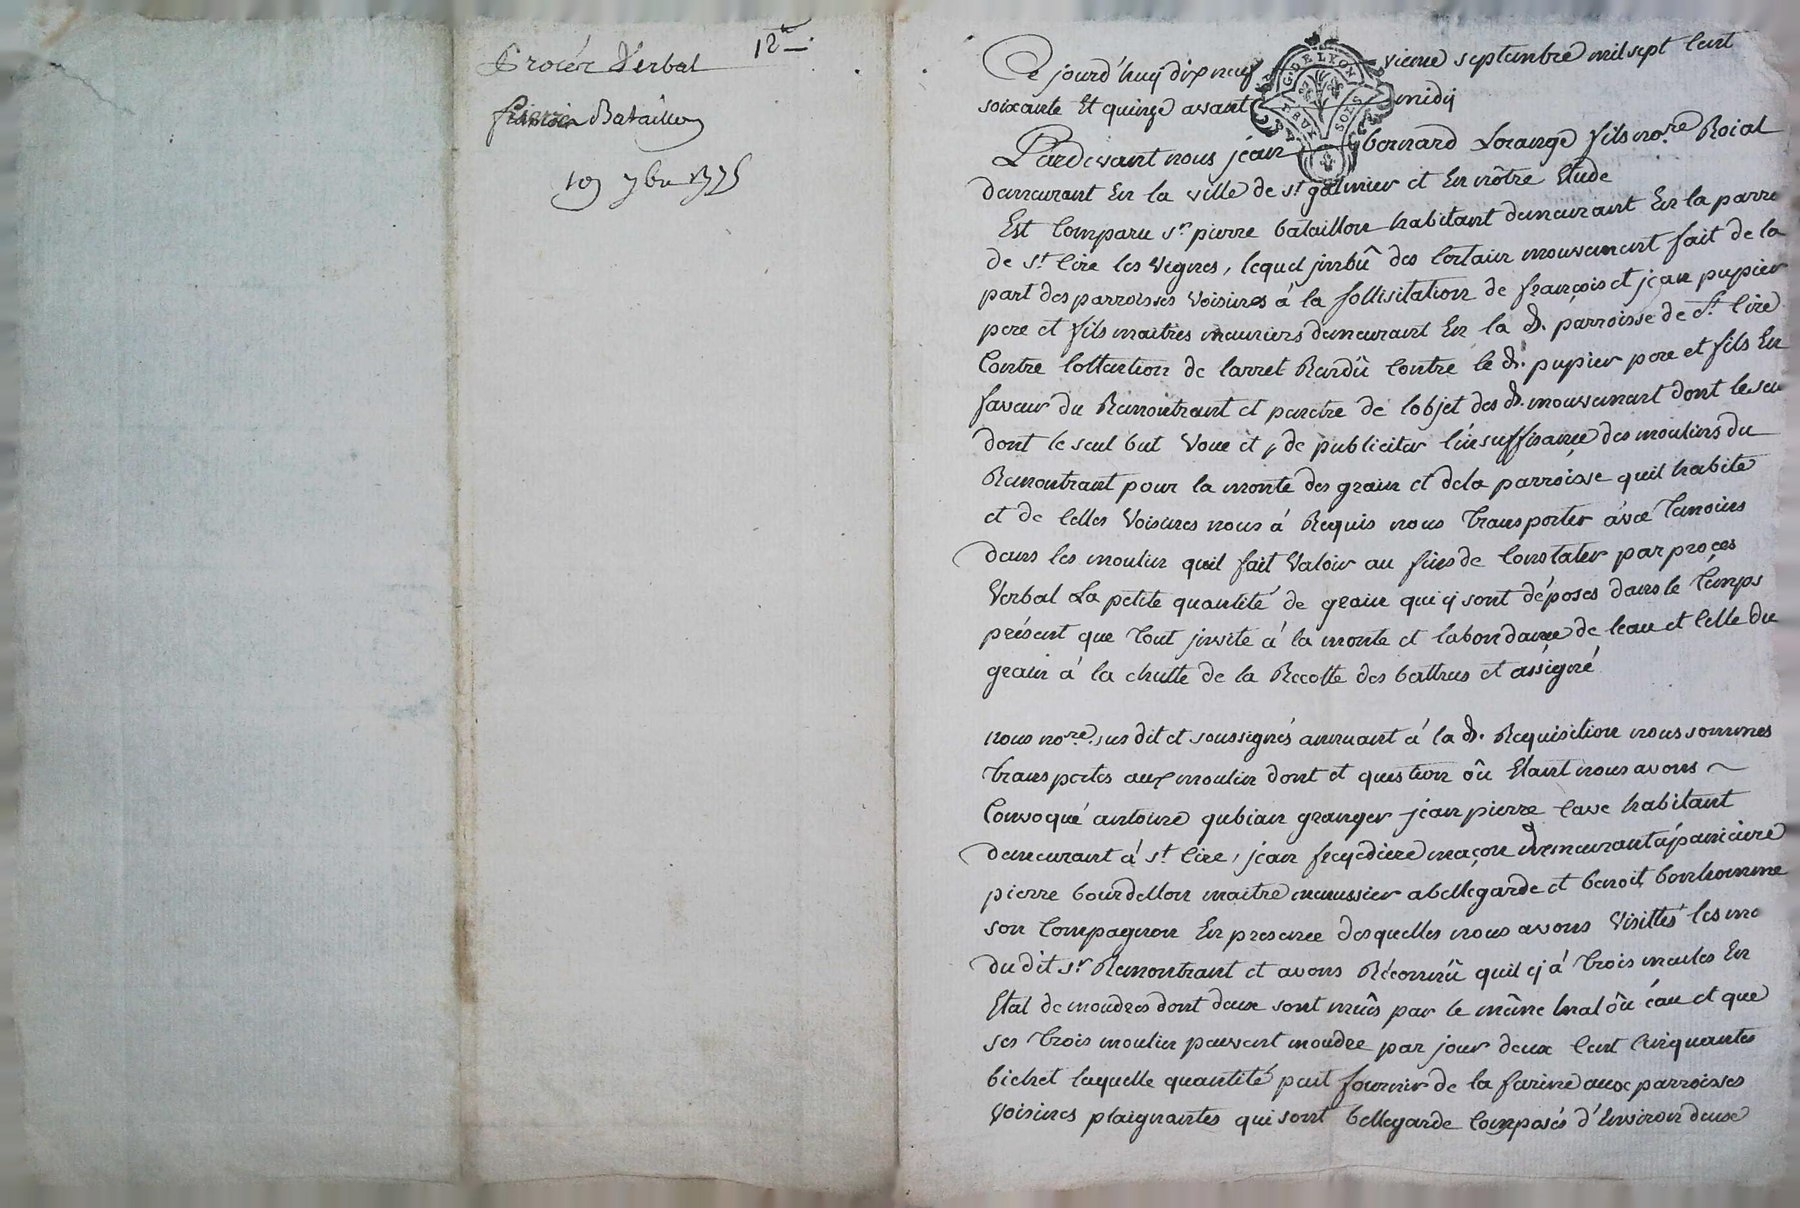 Procés Verbal 12
Bataillon
19 7bre 1775
G. DE LYON
DEUX SOLS
Ce jourd'huy dix neuf vieme septembre mil sept Cent
soixante Et quinze avant midy
Pardevant nous jéan bernard Lorange fils nore Roial
demeurant En la ville de st galmier et En nôtre Etude
Est Comparu sr pierre bataillon habitant demeurant En la parre
de st Cire les vignes, lequel jmbû des Certain mouvement fait de la
part des parroisses Voisines á la sollisitation de françois et jean pupier
pere et fils maitres meuniers demeurant En la d. parroisse de st Cire
Contre lattention de larret Rendû Contre le d. pupier pere et fils En
faveur du Remontrant et penetre de lobjet des d. mouvement dont le seu
dont le seul but Voue et, de publiciter linsuffisance des moulins du
Remontrant pour la monte des grain et de la parroisse quil habite
et de Celles Voisines nous á Requis nous transporter avec temoins
dans les moulin quil fait Valoir au fins de Constater par procés
Verbal La petite quantité de grain qui y sont déposés dans le témps
présent que tout jnvite á la monte et labondance de leau et Celle du
grain á la chutte de la Recolte des battus et ássigné
nous nore. sus dit et soussignés annuant á la d. Requisition nous sommes
transportes aux moulin dont et question oû Etant nous avons
Convoqué antoine gubian granger jéan pierre Cave habitant
demeurant á st Cire, jéan feyediere maçon demeurant á
pierre bourdellon maitre menussier a bellegarde et benoit bonhomme
son Compagnon En presence desquelles nous avons Visittés les mo
du dit sr Remontrant et avons Réconnû quil y á trois meules En
Etat de moudres dont deux sont mûes par le même Cnal oû éau et que
ses trois moulin peuvent moudre par jour deux Cent Cinquantes
bichet laquelle quantité peut fournir de la farine aux parroisses
Voisines plaignantes qui sont bellegarde Composés d'Environ deux